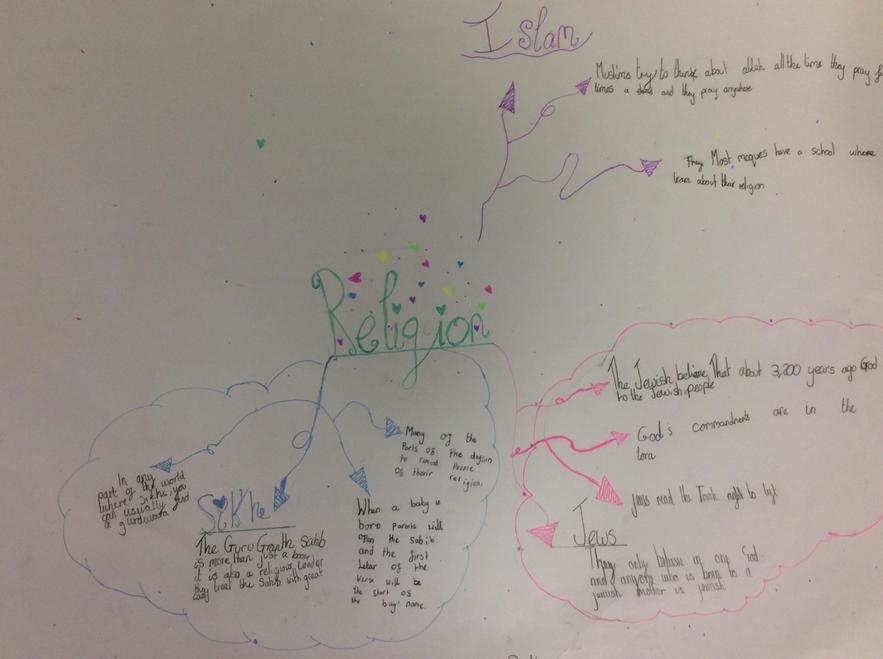 Islam
Muslims try to think about allah all the time they pray
times a and they pray anywhere
They Most moques have a school where
learn about their religion
Religion
The Jewish believe That about 3,200 years ago God
to the Jewish people
God's commandments are in the
tora
Jews read the Torah right to left
Jews
They only believe in one God
and anyone who is born to a
jewish mother is jewish
Many of the
Parts of the
to remind People
of their religion.
In any
part of the world
where Sikhs, you
can usually find
a gurdwara
Sikh
The Guru Granth Sahib
is more than just a book
it is also a religious Leader
they treat the Sahib with great
When a baby is
born will
open the Sahib
and the first
letter of the
Verse will be
the start of
the name